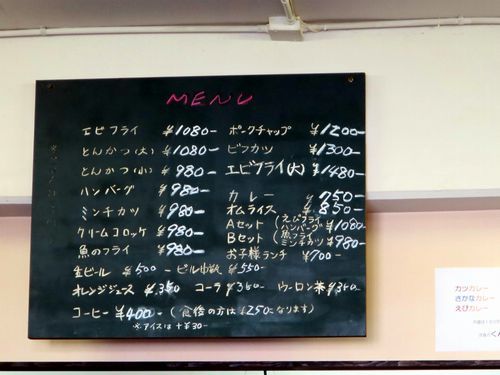 MENU
エビフライ ¥1080-
とんかつ(大) ¥1080-
とんかつ(小) ¥980-
ハンバーグ ¥980-
ミンチカツ ¥980-
クリームコロッケ ¥980-
魚のフライ ¥980-
ポークチャップ ¥1200-
ビフカツ ¥1300-
エビフライ(大) ¥1480-
カレー ¥750-
オムライス ¥850-
Aセット(えびフライ ハンバーグ ¥1080-
Bセット(魚フライ ミンチカツ ¥980-
お子様ランチ ¥700-
生ビール ¥500- ビール中瓶 ¥550-
オレンジジュース ¥350 コーラ ¥350- ウーロン茶 ¥350-
コーヒー ¥400- (食後の方は¥250になります)
※アイスは+¥30-
カツカレー
さかなカレー
えびカレー